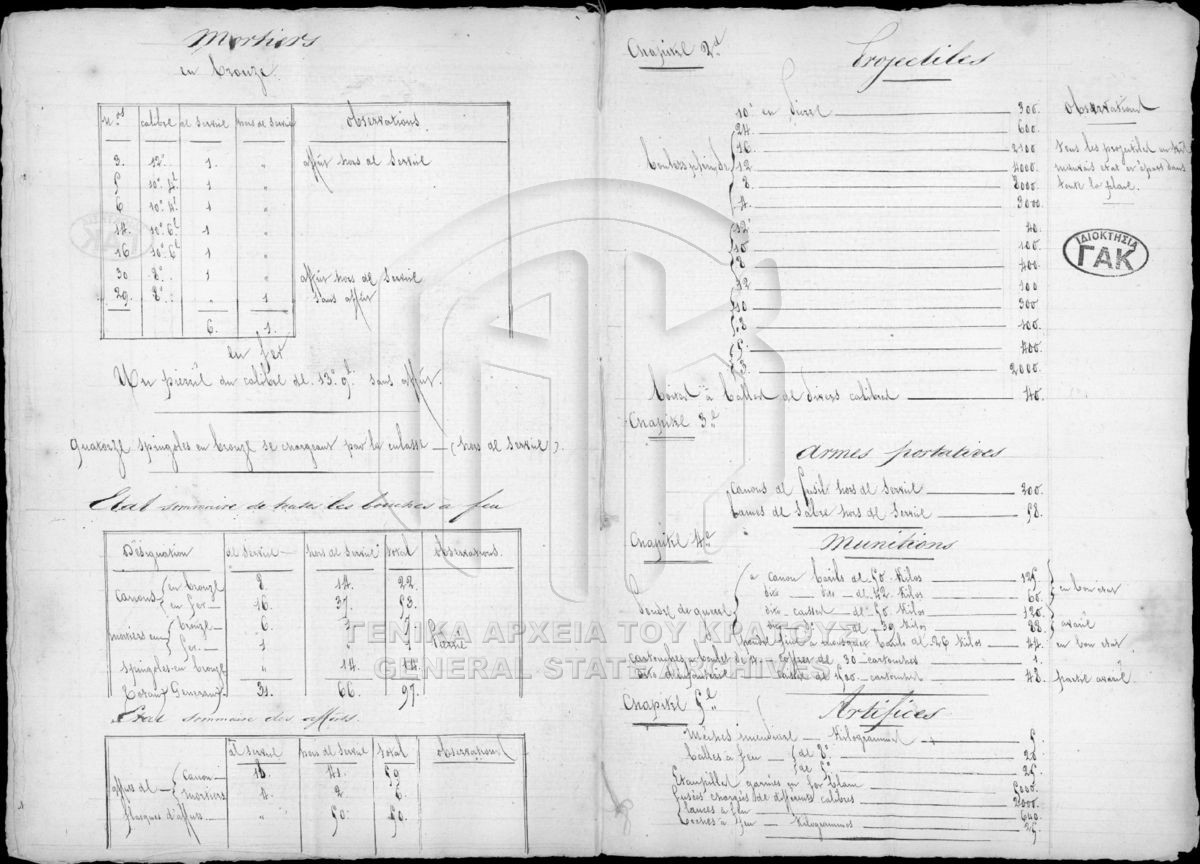 Mortiers
en bronze
N.os calibre de Service hors de Service Observations
3. 12.° 1. " affût hors de Service
5 10.° 4.l 1 "
6 10.° 4.l 1 "
14. 10.° 6.l 1 "
16 10.° 6.l 1 "
30 8.° 1 " affût hors de Service
29. 8.° " 1 Sans affût
6. 1.
en fer
Un pierrié du calibre de 13.° 9.l sans affût.
quatorze spingoles en bronze se chargeant par la culasse — (hors de Service).
Etat sommaire de toutes les bouches à feu
Désignation de Service hors de Service total Observations.
canons en bronze 8. 14. 22.
en fer 16. 37. 53.
mortiers en bronze 6. 1
fer 1 " Pierrié
spingoles en bronze " 14. 14
Totaux Generaux 31. 66. 97.
Etat sommaire des affûts.
de Service hors de Service total observations
affûts de canon 18. 41. 59
mortiers 4. 2 6.
flasques d'affûts " 50. 50.
Chapitre 2.d
Projectiles
Observations
10.° en pierre 300.
24. 600.
16. 2100
Boulets 12 4000.
8 8000.
4. 3000.
tous les projectiles en très
mauvais état et épars dans
toute la place.
12.° 40.
10 100.
8 400.
12 100
10 300
8 100.
5 400.
3 2000.
Boites à balles de divers calibres 40.
Chapitre 3.e
Armes portatives
canons de fusil hors de Service 200.
Lames de Sabre hors de Service 58.
Chapitre 4.e
Munitions
Poudre de guerre à canon barils de 50. Kilos 125. en bon état
dito dito de 42. Kilos 60.
dito caisses de 50. Kilos 120. avarié
dito de 30 Kilos 88.
poudre fine à mousquet barils de 26 Kilos 44. en bon état.
cartouches à boulet de 4. coffres de 30 cartouches 1.
dito d'infanterie caisse de 1500. cartouches 43. partie avarié.
Chapitre 5.e
Artifices
Mèches incendiaires Kilogrammes 5.
Balles à feu de 8.° 28.
de 5.° 25.
Etoupilles garnies en fer blanc 5000.
fusées chargées de différents calibres 2000.
Lances à feu 640.
Torches à feu Kilogrammes 25
ΙΔΙΟΚΤΗΣΙΑ
ΓΑΚ
ΓΕΝΙΚΑ ΑΡΧΕΙΑ ΤΟΥ ΚΡΑΤΟΥΣ
GENERAL STATE ARCHIVES